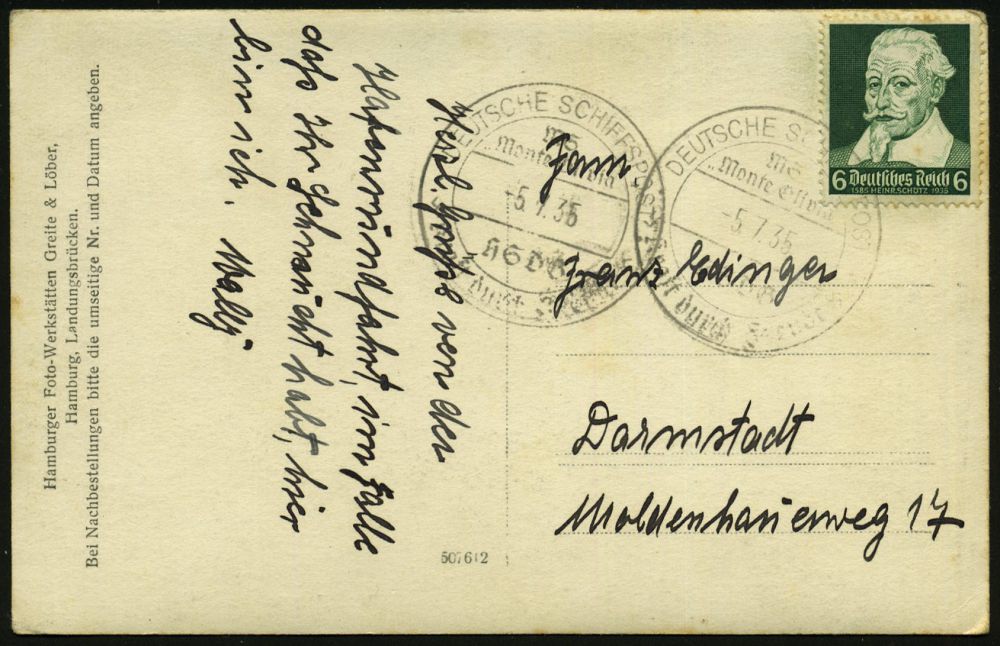 Hamburger Foto-Werkstätten Greite & Löber,
Hamburg, Landungsbrücken.
Bei Nachbestellungen bitte die umseitige Nr. und Datum angeben.
Herzl. Grüße von der
Hafenrundfahrt, im Falle
daß Ihr Sehnsucht habt, hier
bin ich. Mally
DEUTSCHE SCHIFFSPOST
MS
"Monte Olivia"
-5.7.35
HSDG
Kraft durch Freude
DEUTSCHE SCHIFFSPOST
MS
"Monte Olivia"
-5.7.35
Kraft durch Freude
6 Deutsches Reich 6
1585 HEINR. SCHÜTZ 1935
Fam.
Franz Edinger
Darmstadt
Moldenhauerweg 17
507612